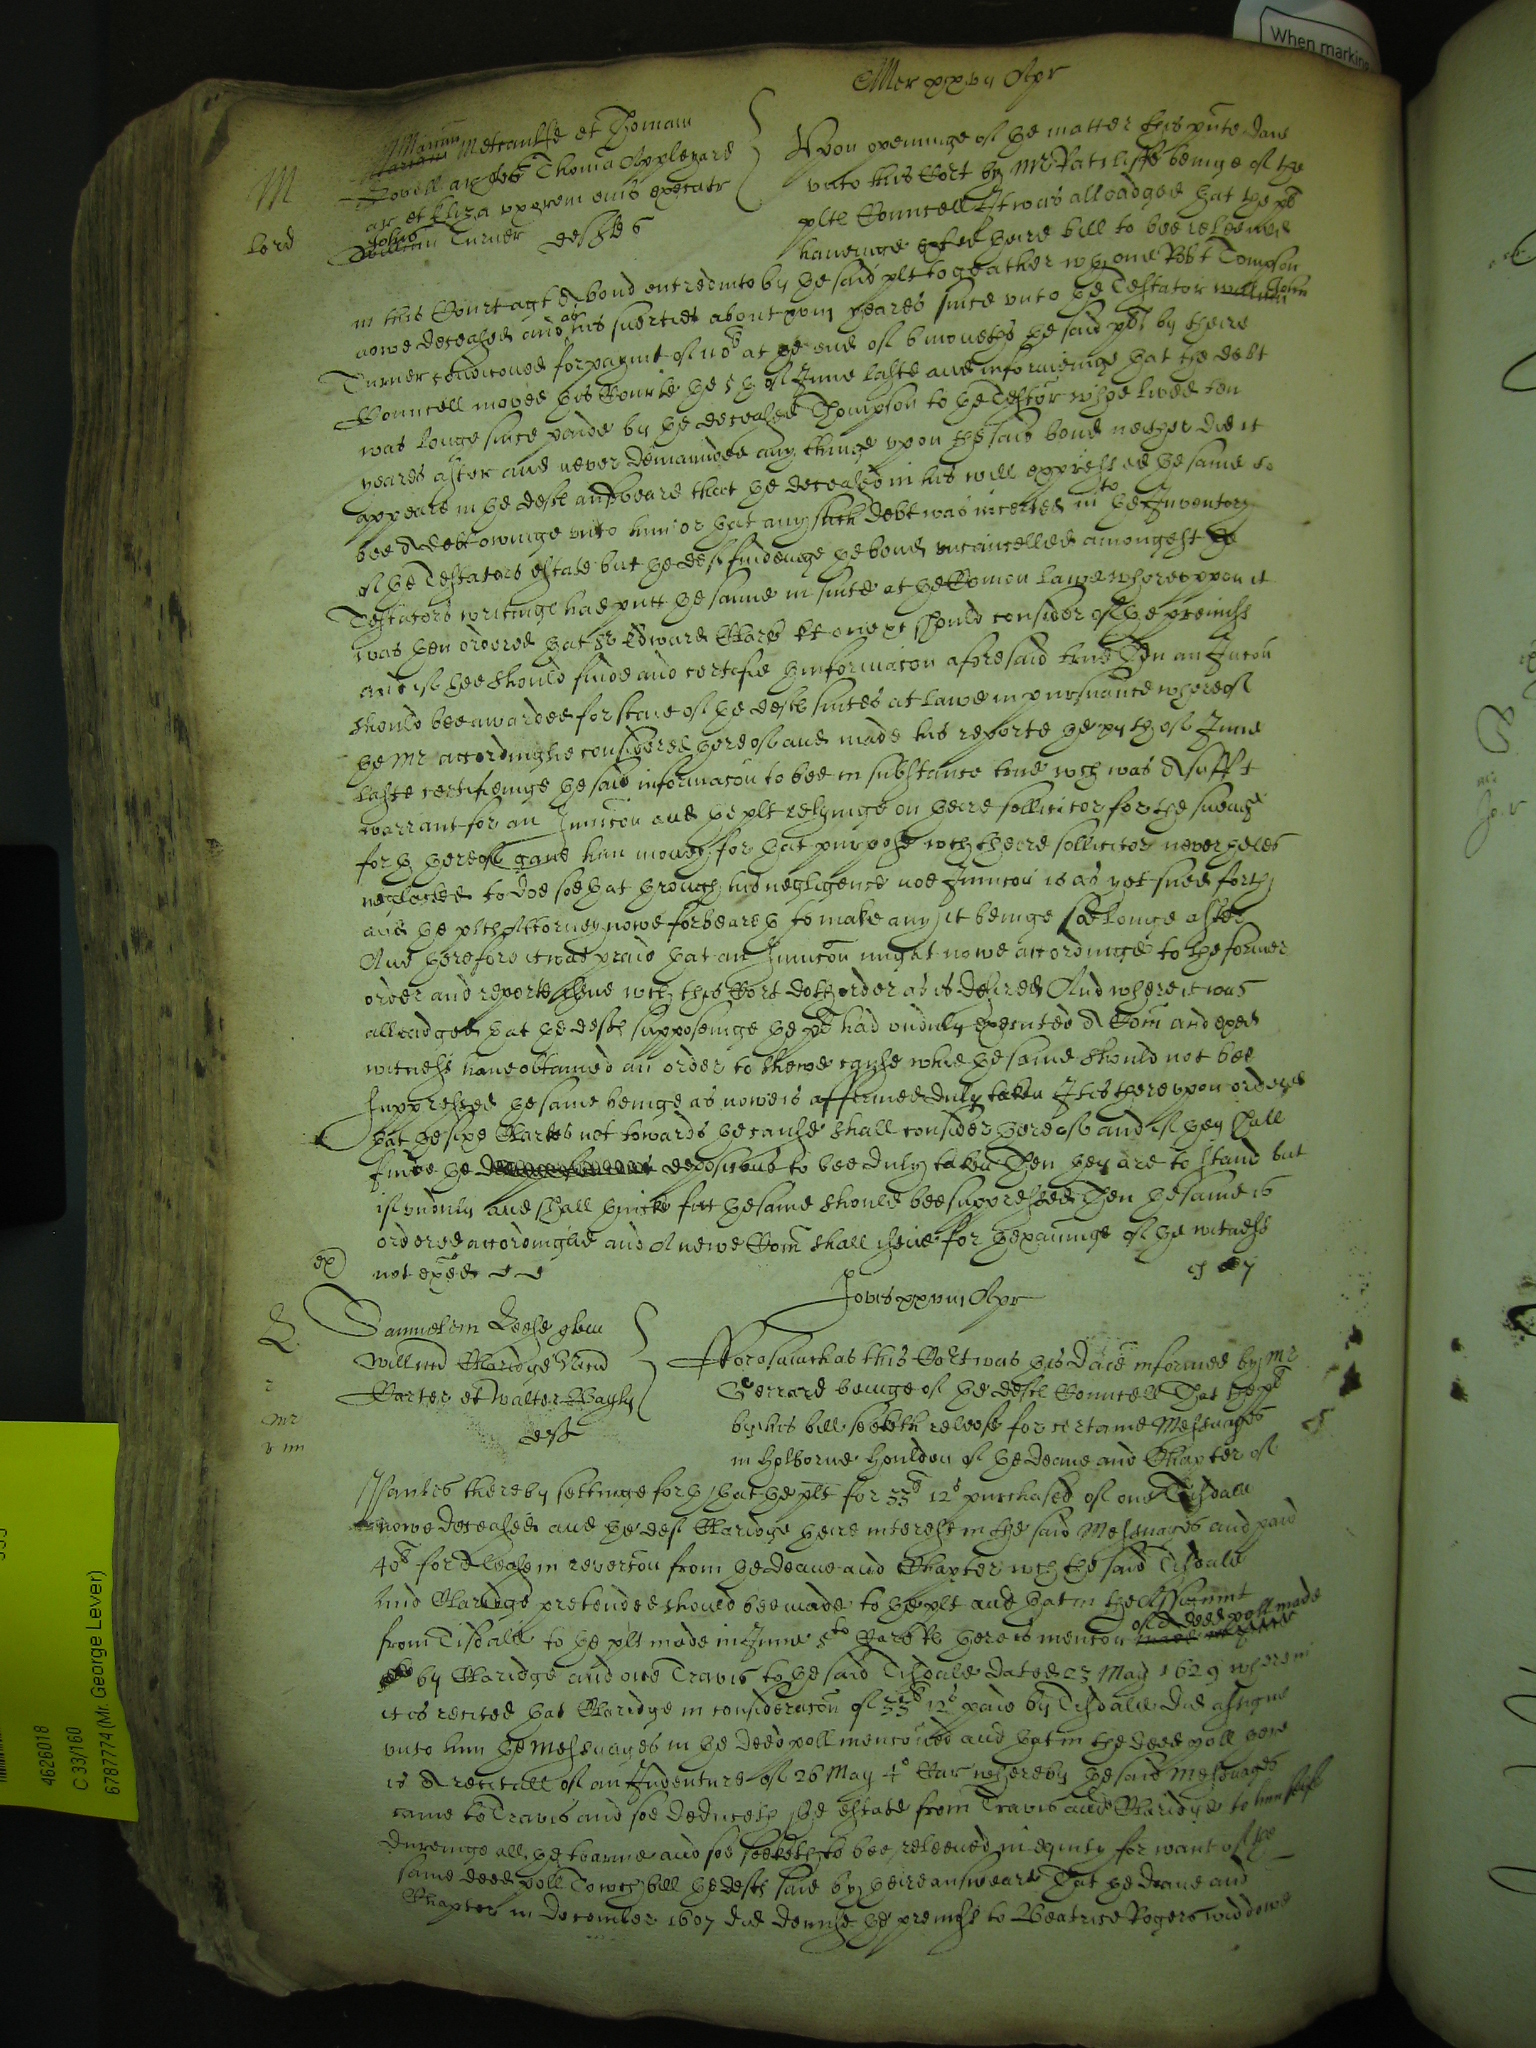 When marking
Mer xxvij Apr
M
Marium Metcaulfe et Thomam
Powell ar Thoma Appleyard
ar et Eliza uxorem eius executr
lord
John
William Turner deftes
Vpon openinge of the matter this pnte daie
vnto this Cort by Mr Ratcliffe beinge of the
pltes Councell It was alleadged that the plts
haveinge theire bill to bee releeved
in this Court agt A bond entred into by the said plts togeather wth one Robt Tompson
nowe deceased and as his suerties about xviij yeares since vnto the Testator William John
Turner condiconed for paymt of at the end of 6 moneths the said plts by theire
Councell moved this Courte the 5th of June laste and informeinge that the debt
was longe since paide by the deceased Thompson to the Testator whoe lived ten
yeares after and never demaunded any thinge vpon the said bond nether did it
appeare in the deftes answeare that the deceased in his will expressed the same to
bee A debt oweinge vnto him or that any such debt was incerted in to the Inventory
of the Testators estate but the deft findeinge the bond vncancelled amongest the
Testators writinges had putt the same in suite at the Comon lawe wherevppon it
was then ordered that Sr Edward Clark kt one &c should consider of the premisses
and if hee should finde and certefie thinformacon aforesaid true Then an Iniuccon
should bee awarded for staie of the deftes suites at lawe in pursuance whereof
the Mr accordinglie considered thereof and made his reporte the xijth of June
laste certifieinge the said informacon to bee in substance true wch was A sufft
warrant for an Iniuccon and the plts relyinge on theire sollicitor for the sueinge
forth thereof gave him money for that purpose wch theire sollicitor nevertheles
neglected to doe soe that through his negligence noe Iniuccon is as yet sued forth
and the pltes Attorney nowe forbeareth to make any it beinge soe longe after
And therefore it was praid that an Iniuccon might nowe accordinge to the former
order and reporte issue wch this Cort doth order as is desired And where it was
alleadged that the deftes supposeinge the plts had vnduly executed A Com and exed
witnesses have obtained an order to shewe cause whie the same should not bee
suppressed the same beinge as nowe is affirmed duly taken It is therevpon ordered
that the sixe Clarkes not towards the cause shall consider thereof and if they shall
finde the deposicons to bee duly taken Then they are to stand but
if vnduly and shall thinke fitt the same should bee suppressed Then the same is
ordered accordinglie and A newe Com shall issue for thexaminge of the witnesses
not exed
ex
Jovis xxviij Apr
L
Samuelem Leese quer
Willm Claridge Ricd
Carter et Walter Bayly
deft
Mr
Forasmuch as this Cort was this daie informed by Mr
Gerrard beinge of the deftes Councell That the plt
by his bill seeketh releefe for certaine Messuages
in Holborne houlden of the Deane and Chapter of
Paules thereby settinge forth that the plt for 33l 12s purchased of one Tisdale
nowe deceased and the deft Claridge theire interest in the said Messuages and paid
40l for A lease in revercon from the deane and Chapter wch the said Tisdale
and Claridge pretended should bee made to the plt and that in the Assignmt
from Tisdale to the plt made in June 5to Car Re there is mencon of A deed poll made
by Claridge and one Travis to the said Tisdale dated 23 May 1629 wherein
it is recited that Claridge in consideracon of 33l 12s paid by Tisdale did assigne
vnto him the Messuages in the deed poll menconed and that in the deed poll there
is A recitall of an Indenture of 26 May 4o Car whereby the said Messuages
came to Travis and soe deduceth the estate from Travis and Claridge to himselfe
dureinge all the tearme and soe seeketh to bee releeved in equity for want of the
same deed poll To wch bill the deftes said by theire answeare That the Deane and
Chapter in December 1607 did demise the premisses to Beatrice Rogers widdowe
4626018
C 33/160
6787774 (Mr. George Lever)